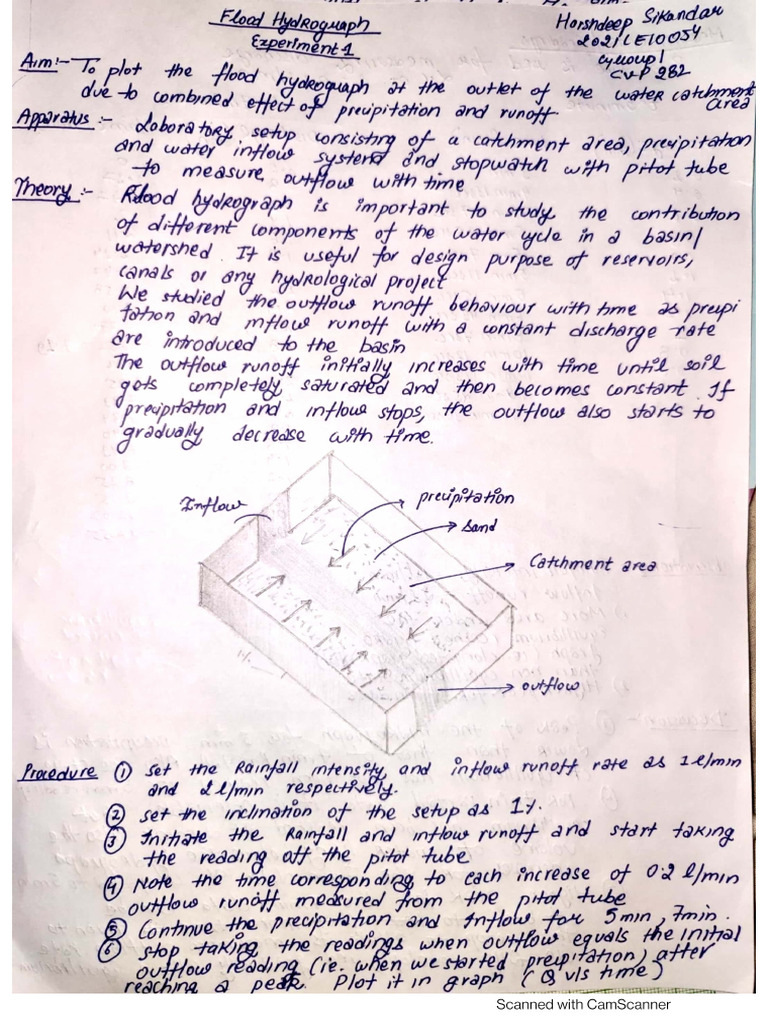 Flood Hydrograph
Experiment 1
Harshdeep Sikandar
2021CE10054
Group 1
CVP 282
Aim:- To plot the flood hydrograph at the outlet of the water catchment area
due to combined effect of precipitation and runoff.
Apparatus:- Laboratory setup consisting of a catchment area, precipitation
and water inflow system and stopwatch with pitot tube
to measure outflow with time
Theory:- Flood hydrograph is important to study the contribution
of different components of the water cycle in a basin/
watershed. It is useful for design purpose of reservoirs,
canals or any hydrological project
We studied the outflow runoff behaviour with time as precipi
tation and inflow runoff with a constant discharge rate
are introduced to the basin
The outflow runoff initially increases with time until soil
gets completely saturated and then becomes constant. If
precipitation and inflow stops, the outflow also starts to
gradually decrease with time.
Inflow
precipitation
sand
Catchment area
outflow
Procedure ① set the Rainfall intensity and inflow runoff rate as 1 l/min
and 2 l/min respectively.
② set the inclination of the setup as 1%.
③ Initiate the Rainfall and inflow runoff and start taking
the reading off the pitot tube
④ Note the time corresponding to each increase of 0.2 l/min
outflow runoff measured from the pitot tube
⑤ Continue the precipitation and Inflow for 5min, 7min.
⑥ stop taking the readings when outflow equals the initial
outflow reading (ie. when we started precipitation) after
reaching a peak. Plot it in graph (Q v/s time)
Scanned with CamScanner